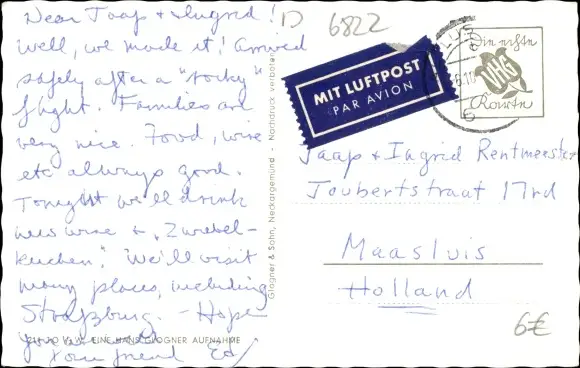 Dear Jaap & Ingrid!
Well, we made it! Arrived
safely after a "rocky"
flight. Families are
very nice. Food, wine
etc always good.
Tonight we'll drink
new wine & "Zwiebel-
kuchen". We'll visit
many places, including
Straßburg. - Hope
you
Your friend Ed
EINE HANS GLOGNER AUFNAHME
Glogner & Sohn, Neckargemünd - Nachdruck verboten
D 6822
MIT LUFTPOST
PAR AVION
Die echte
VHG
Karte
Jaap & Ingrid Rentmeester
Joubertstraat 17rd
Maasluis
Holland
6€